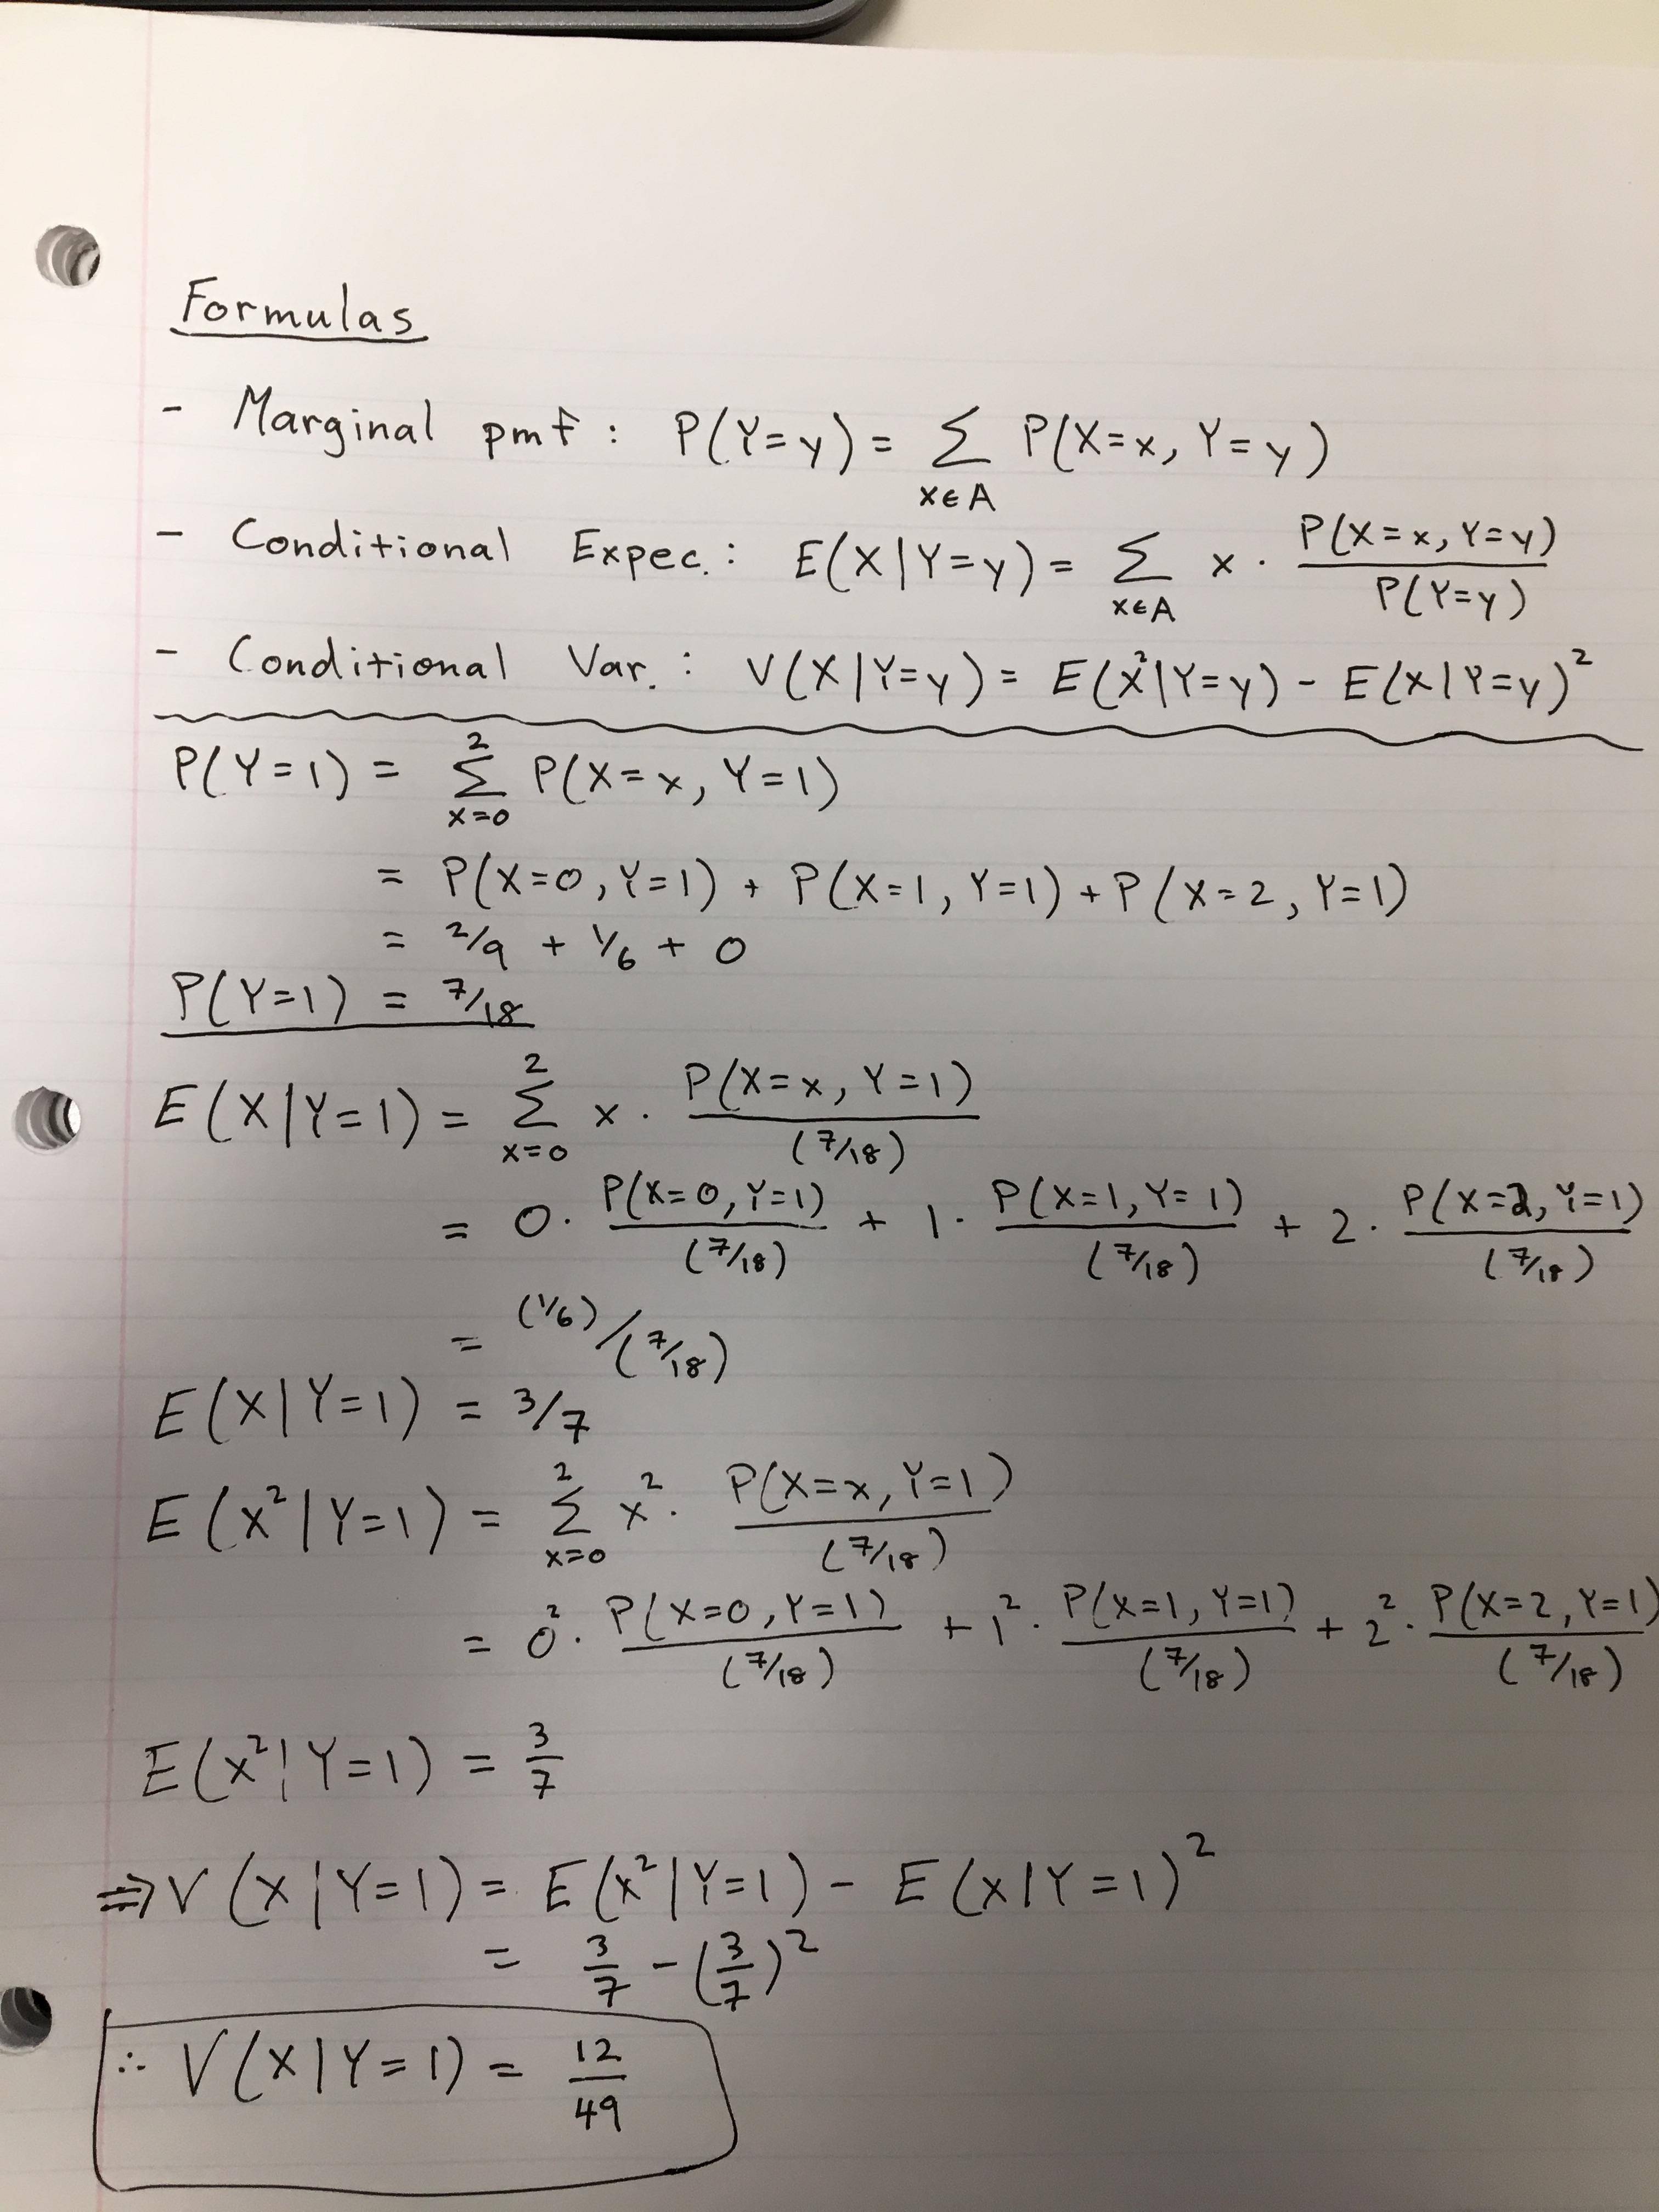 Formulas
- Marginal pmf : P(Y=y) = Σ_{x∈A} P(X=x, Y=y)
- Conditional Expec. : E(X|Y=y) = Σ_{x∈A} x · P(X=x, Y=y) / P(Y=y)
- Conditional Var. : V(X|Y=y) = E(X²|Y=y) - E(X|Y=y)²
P(Y=1) = Σ_{x=0}^{2} P(X=x, Y=1)
= P(X=0, Y=1) + P(X=1, Y=1) + P(X=2, Y=1)
= 2/9 + 1/6 + 0
P(Y=1) = 7/18
E(X|Y=1) = Σ_{x=0}^{2} x · P(X=x, Y=1) / (7/18)
= 0 · P(X=0, Y=1) / (7/18) + 1 · P(X=1, Y=1) / (7/18) + 2 · P(X=2, Y=1) / (7/18)
= (1/6) / (7/18)
E(X|Y=1) = 3/7
E(X²|Y=1) = Σ_{x=0}^{2} x² · P(X=x, Y=1) / (7/18)
= 0² · P(X=0, Y=1) / (7/18) + 1² · P(X=1, Y=1) / (7/18) + 2² · P(X=2, Y=1) / (7/18)
E(X²|Y=1) = 3/7
⇒ V(X|Y=1) = E(X²|Y=1) - E(X|Y=1)²
= 3/7 - (3/7)²
∴ V(X|Y=1) = 12/49